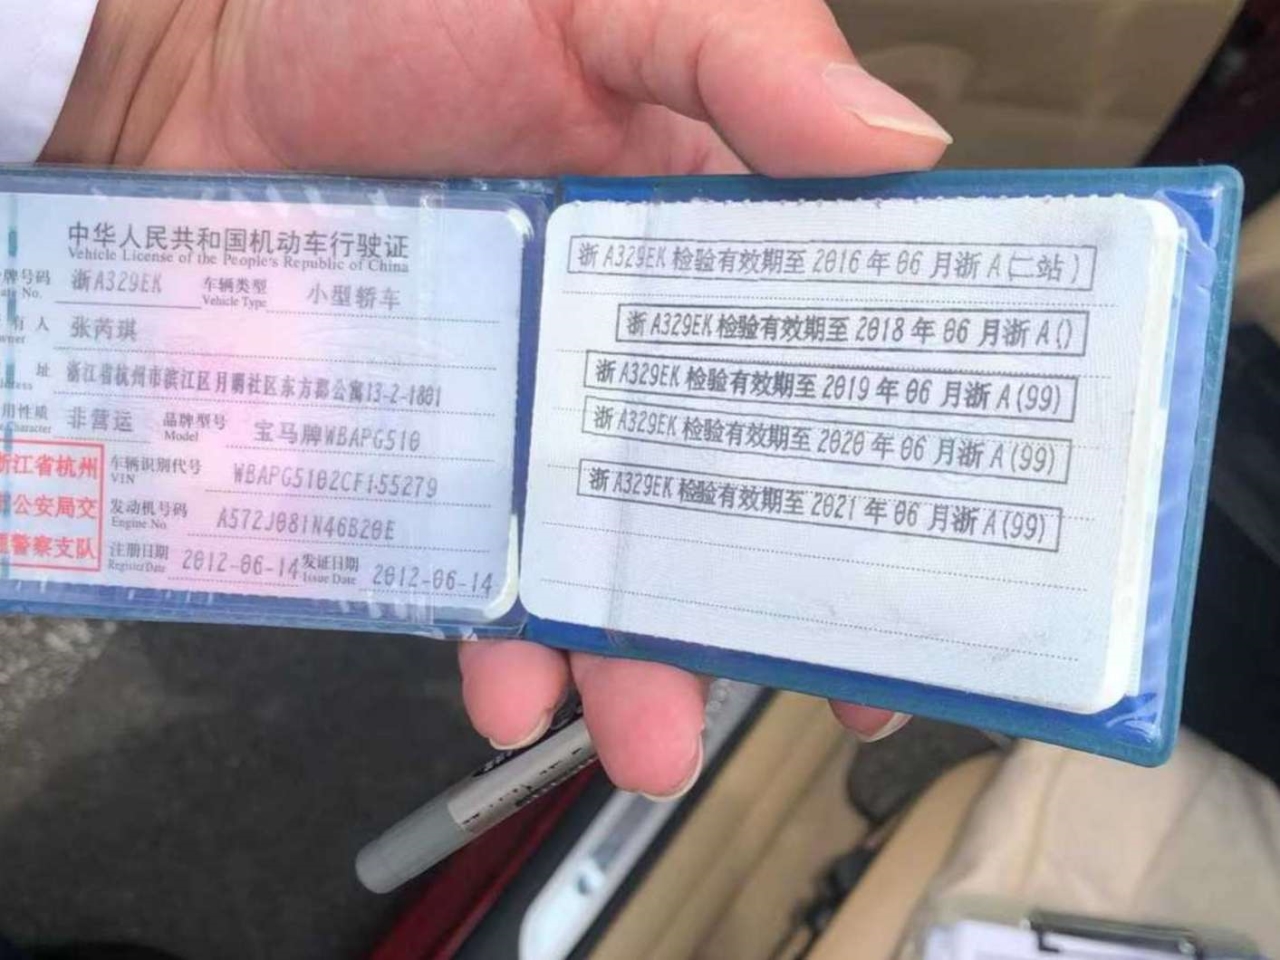 中华人民共和国机动车行驶证
Vehicle License of the People's Republic of China
牌号码 浙A329EK 车辆类型 小型轿车
No. Vehicle Type
有人 张芮琪
址 浙江省杭州市滨江区月明社区东方郡公寓13-2-1801
用性质 非营运 品牌型号 宝马牌WBAPG510
Character Model
浙江省杭州
公安局交
警察支队
车辆识别代号 WBAPG5102CF155279
VIN
发动机号码 A572J081N46B20E
Engine No.
注册日期 2012-06-14 发证日期 2012-06-14
Register Date Issue Date
浙A329EK检验有效期至2016年06月浙A(二站)
浙A329EK检验有效期至2018年06月浙A()
浙A329EK检验有效期至2019年06月浙A(99)
浙A329EK检验有效期至2020年06月浙A(99)
浙A329EK检验有效期至2021年06月浙A(99)